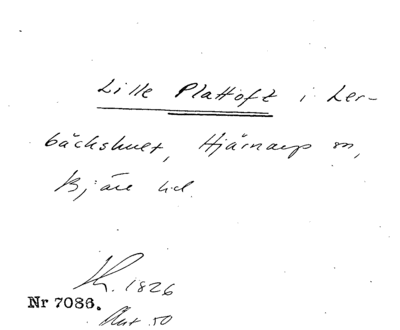 Lille Plattoft i Ler-
bäckshult, Hjärnarp sn,
Bjäre hd.
1826
Nr 7086.
50